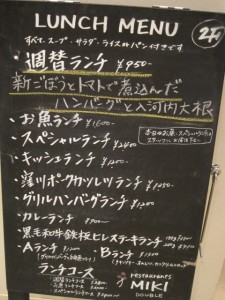 LUNCH MENU
24
すべて、スープ・サラダ・ライス又はパン付きです
週替ランチ ¥950-
新ごぼうとトマトで煮込んだ
ハンバーグと入河内大根
・お魚ランチ ¥1600-
・スペシャルランチ ¥2400
・キッシュランチ ¥1200
・窪川ポークカツレツランチ ¥1450-
・グリルハンバーグランチ ¥1200
・カレーランチ ¥900-
・黒毛和牛鉄板ビレステーキランチ
・Aランチ ¥1200 ・Bランチ
ランチコース
restaurant
MIKI
DOUBLE